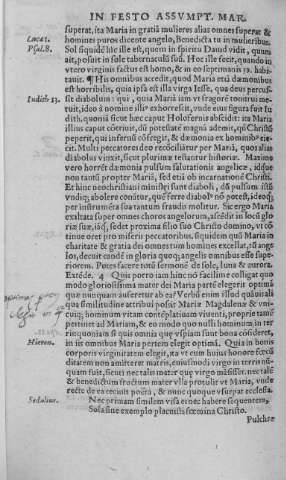 IN FESTO ASSVMPT. MAR.
Lucæ 1.
Psal. 8.
superat, ita Maria in gratia mulieres alias omnes superat &
homines puros dicente angelo, Benedicta tu in mulieribus.
Sol siquidē hic ille est, quem in spiritu Dauid vidit, quum
ait, posuit in sole tabernaculū suū. Hoc ille fecit, quando in
vtero virginis factus est homo, & in eo septimanis habi-
tauit. ¶ His omnibus accedit, quod Maria etiā dæmonibus
est horribilis, quia ipsa est illa virga Iesse, qua deus percus-
Iudith 13.
sit diabolum: qui, quia Mariā
tuit, ideo à nomine illius exhorrescit, vnde eius figura fuit Iu
dith, quoniā sicut hæc caput Holofernis abscidit: ita Maria
illius caput cōtriuit, dū potestatē magnā ademit, quū Christū
peperit, qui infernū cōfregit, & dæmonia ex hominibus eie-
cit. Multi peccatores deo recōciliātur per Mariā, quos alias
diabolus vinxit, sicut plurimæ testantur historiæ. Maxime
vero horrēt dæmonia pulsum salutationis angelicæ, idque
non tantū propter Mariā, sed etiā ob incarnationē Christi.
Et hinc neochristiani ministri sunt diaboli, dū pulsum istū
vndique abolere conātur, quē ferre diabolus nō potest, ideoque
per instrumēta sua tantum fraudis molitur. Sic ergo Maria
exaltata super omnes choros angelorum, ascēdit in locū glo
riæ suæ, idque, sedet proxima filio suo Christo domino, vt cō
tinue oret pro miseri peccatoribus, siquidem quū Maria in
charitate & gratia dei omnes tum homines excellat, tū ange
los, decuit eandē in gloria quoque angelis omnibus esse supe-
riorem. Potes facere totū sermonē de sole, luna & aurora.
Extēde. 4 Quis porro iam hinc nō facilime colligat quo
modo gloriosissima mater dei Maria partē elegerit optimā
que nunquam auferetur ab ea? Verbū enim illud quāuis ali
qua similitudine attribui posset Mariæ Magdalenæ & vni-
cuique hominum vitam contēplatiuam viuenti, proprie tamen
pertinet ad Mariam, & eo modo quo nulli hominum in ter
Hieron.
ris quoniam si quis omnia quæ vspiam sunt bona cōsideret,
in iis omnibus Maria partem elegit optimā. Quia in bonis
corporis virginitatem elegit, ita vt cum huius honore fœcū
ditatem non amitteret matris, cuiusmodi virgo in terris nū-
quam fuit, sicuti nec talis mater quæ virgo māsisset, nec talē
& benedictum fructum mater vlla protulit vt Maria, vnde
recte de ea cecinit poëta, & nunc quoque vsurpat ecclesia.
Sedulius.
Nec primam similem visa es nec habere sequentem,
Sola sine exemplo placuisti fœmina Christo.
Pulchræ